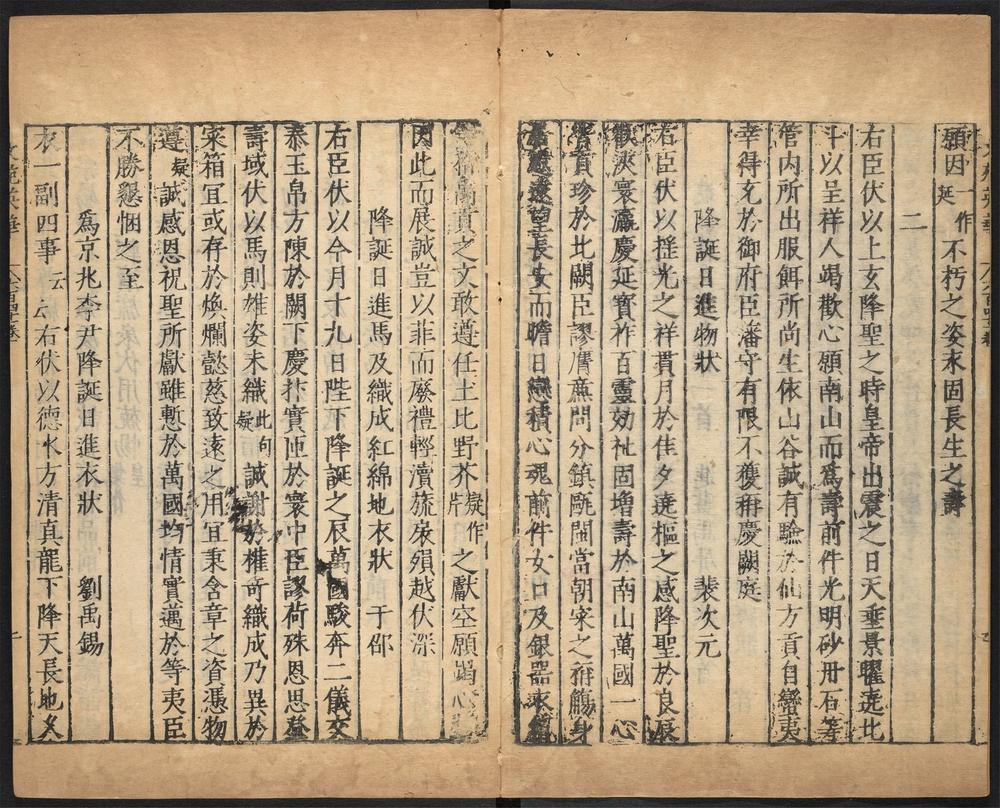 願因一作延不朽之姿末固長生之壽
二
右臣伏以上玄降聖之時皇帝出震之日天垂景曜遶北
斗以呈祥人竭歡心願南山而爲壽前件光明砂丹石等
管内所出服餌所尚生依山谷誠有驗於仙方貢自蠻夷
幸得充於御府臣藩守有限不獲稱慶闕庭
降誕日進物狀 裴次元
右臣伏以揺光之祥貫月於佳夕遶樞之感降聖於良辰
歡浹寰瀛慶延寳祚百靈効祉固增壽於南山萬國一心
賫珍於北闕臣謬膺廉問分鎮甌閩當朝寀之稱觴身
遠望長安而瞻日戀積心魂前件女口及銀器衣
萬貢之文敢遵任土比野芥疑作片之獻空願竭心
因此而展誠豈以菲而廢禮輕瀆旒扆殞越伏深
降誕日進馬及織成紅綿地衣狀 于邵
右臣伏以今月十九日陛下降誕之辰萬國駿奔二儀交
泰玉帛方陳於闕下慶抃實匝於寰中臣謬荷殊恩思登
壽域伏以馬則雄姿未織此句疑誠謝於權奇織成乃異於
寀箱冝或存於煥爛懿慈致遠之用宜秉含章之資憑物
遵疑誠感恩祝聖所獻雖慙於萬國均情實邁於等夷臣
不勝懇悃之至
爲京兆李尹降誕日進衣狀 劉禹錫
衣一副四事云云右伏以德水方清真龍下降天長地久